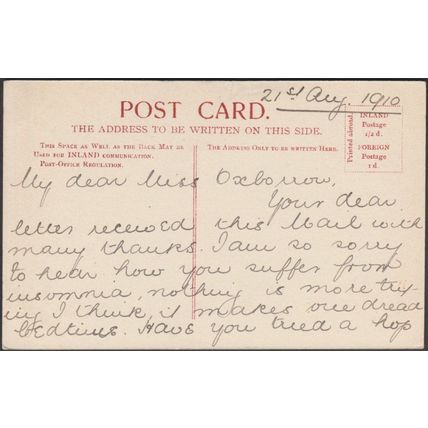 21st Aug. 1910
POST CARD.
THE ADDRESS TO BE WRITTEN ON THIS SIDE.
THIS SPACE AS WELL AS THE BACK MAY BE
USED FOR INLAND COMMUNICATION.
POST-OFFICE REGULATION.
THE ADDRESS ONLY TO BE WRITTEN HERE.
Printed abroad.
INLAND
Postage
1/2 d.
FOREIGN
Postage
1 d.
My dear Miss Oxborrow,
Your dear
letter received this Mail with
many thanks. I am so sorry
to hear how you suffer from
insomnia, nothing is more try-
ing I think, it makes one dread
bedtime. Have you tried a hop